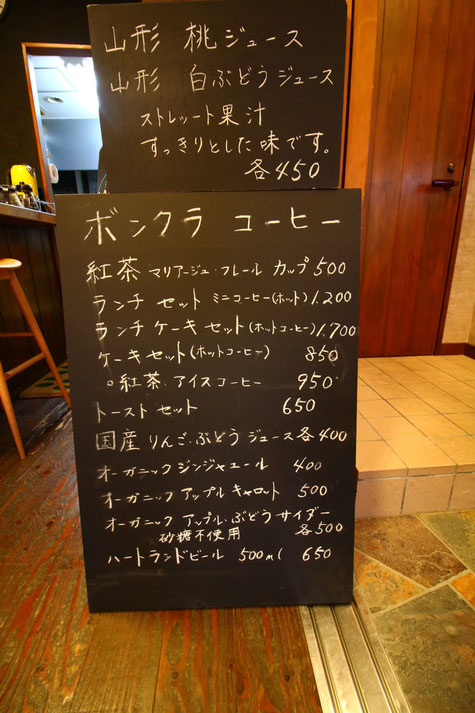 山形 桃ジュース
山形 白ぶどうジュース
ストレッート果汁
すっきりとした味です。
各450
ボンクラ コーヒー
紅茶 マリアージュ・フレール カップ 500
ランチ セット ミニコーヒー(ホット) 1,200
ランチケーキセット(ホットコーヒー) 1,700
ケーキセット(ホットコーヒー) 850
○紅茶・アイスコーヒー 950
トースト セット 650
国産 りんご・ぶどう ジュース 各400
オーガニックジンジャエール 400
オーガニック アップルキャロット 500
オーガニック アップル・ぶどうサイダー
砂糖不使用 各500
ハートランドビール 500ml 650